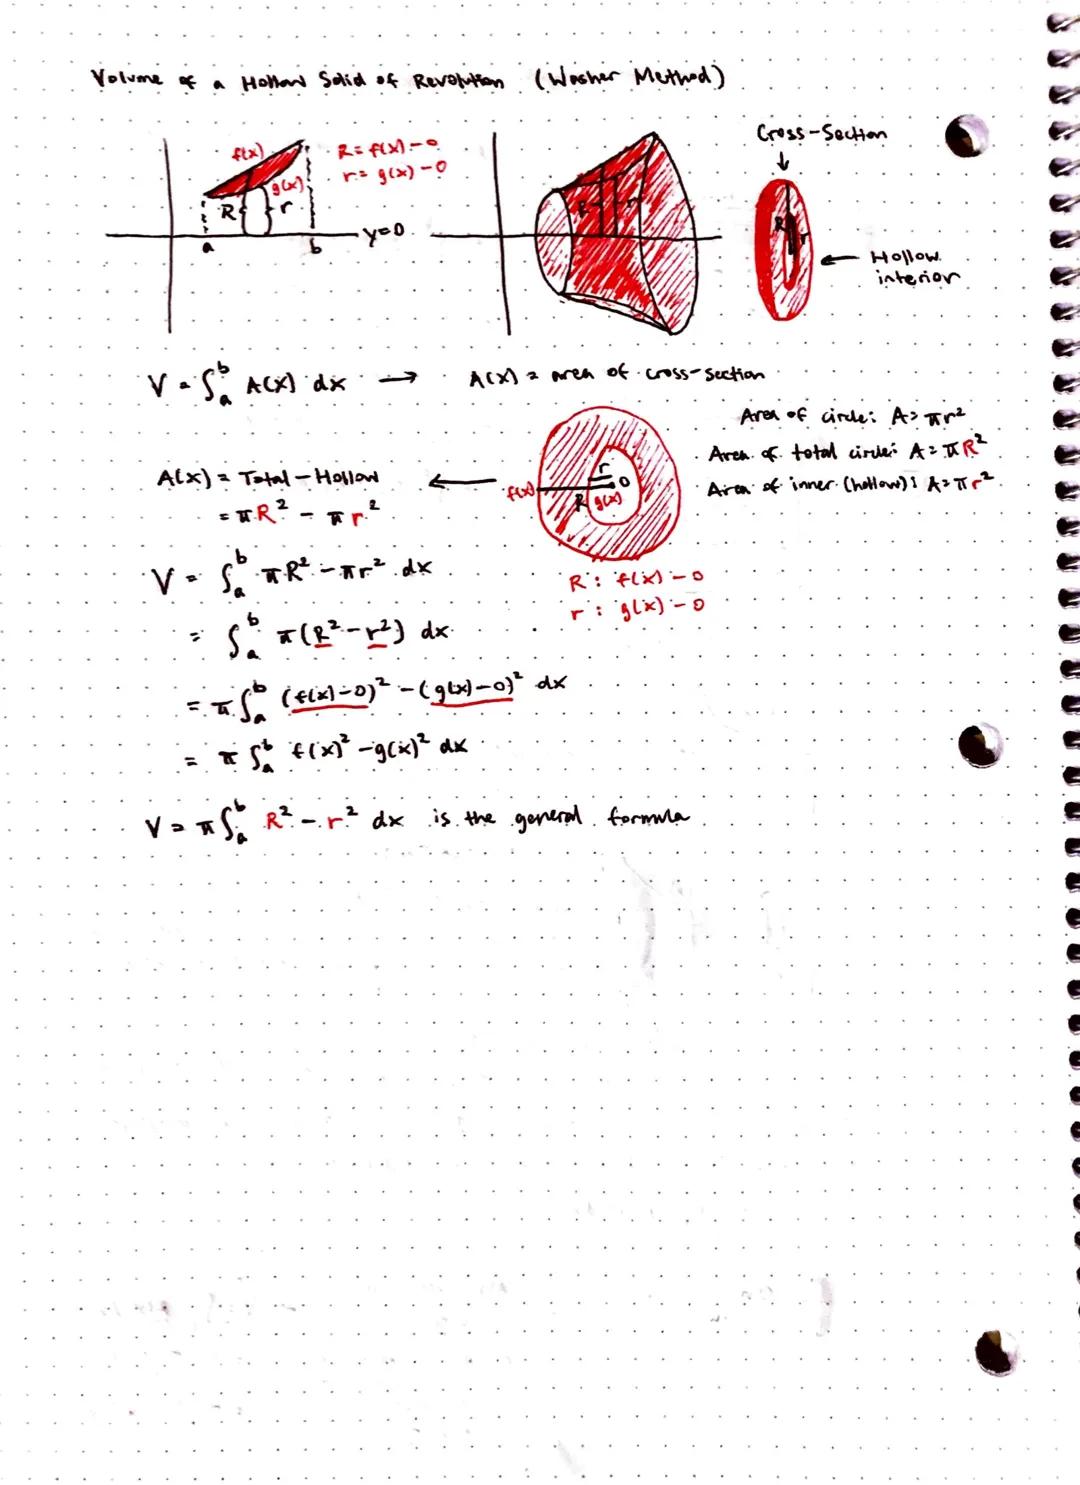 Volume of a Hollow Solid of Revolution (Washer Method)
Cross-Section
f(x)
R = f(x) - 0
r = g(x) - 0
g(x)
R
r
y=0
a
b
R
r
R
r
Hollow
interior
V = ∫ₐᵇ A(x) dx → A(x) = area of cross-section
Area of circle: A = πr²
Area of total circle: A = πR²
Area of inner (hollow): A = πr²
A(x) = Total - Hollow
= πR² - πr²
f(x)
r
0
R
g(x)
V = ∫ₐᵇ πR² - πr² dx
R: f(x) - 0
r: g(x) - 0
= ∫ₐᵇ π(R² - r²) dx
= π∫ₐᵇ (f(x)-0)² - (g(x)-0)² dx
= π ∫ₐᵇ f(x)² - g(x)² dx
V = π∫ₐᵇ R² - r² dx is the general formula